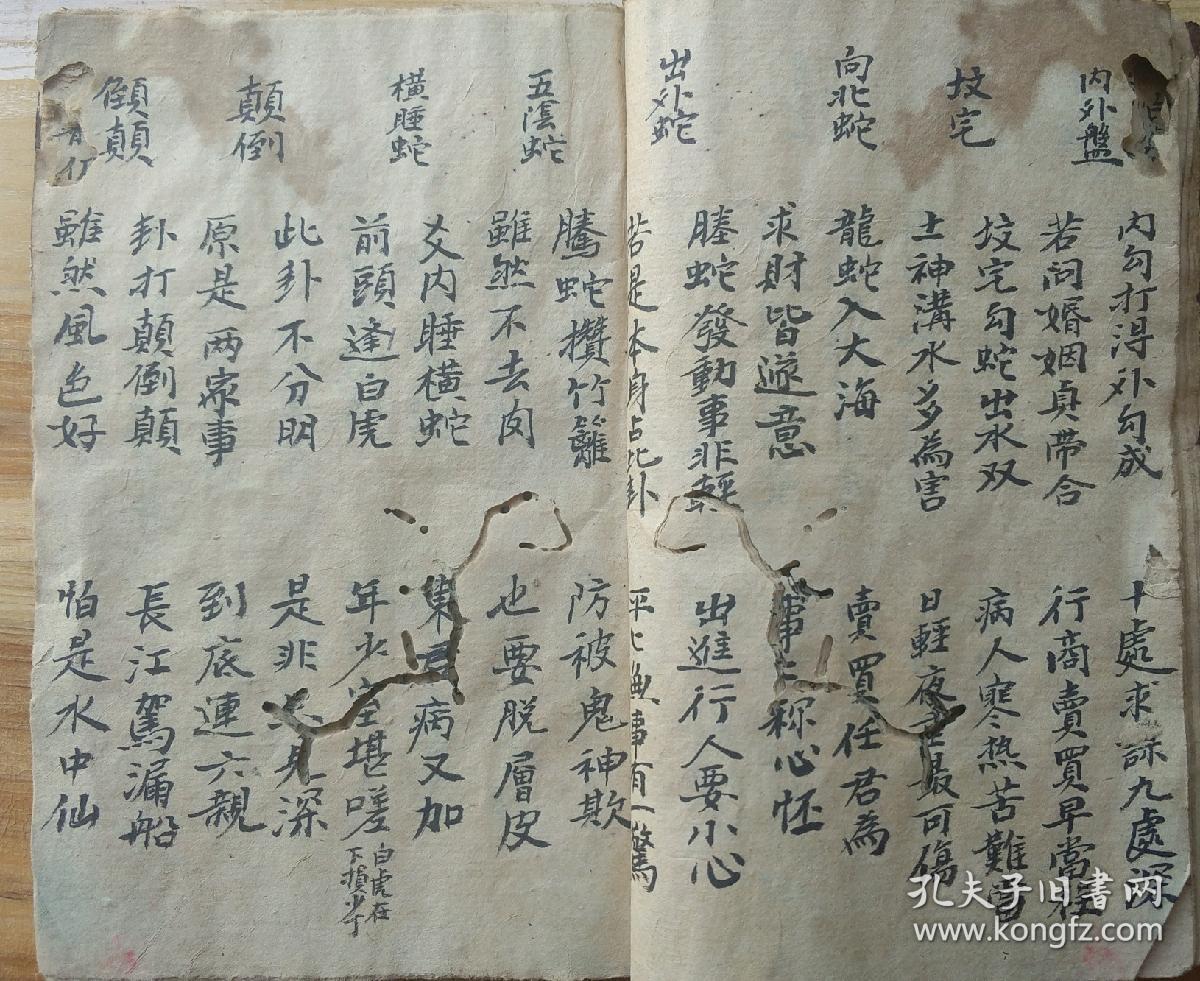 内外盤
内勾打淂外勾成
十處求 九處深
若问婚姻真帶合
行商賣買早當
坟宅
坟宅勾蛇出水双
病人寒热苦難
土神溝水多為害
日輕夜 最可傷
向北蛇
龍蛇入大海
賣買任君為
求財皆遂意
事 称心怀
出外蛇
螣蛇發動事非輕
出進行人要小心
若是本身占此卦
事有一驚
五陰蛇
騰蛇攢竹籬
防被鬼神欺
雖然不去肉
也要脱層皮
橫睡蛇
爻内睡横蛇
病又加
前頭逢白虎
年少 堪嗟
白虎在
下損少丁
顛倒
此卦不分明
是非 深
原是两家事
到底連六親
倒顛
卦打顛倒顛
長江駕漏船
雖然風色好
怕是水中仙
孔夫子旧書网
www.kongfz.com